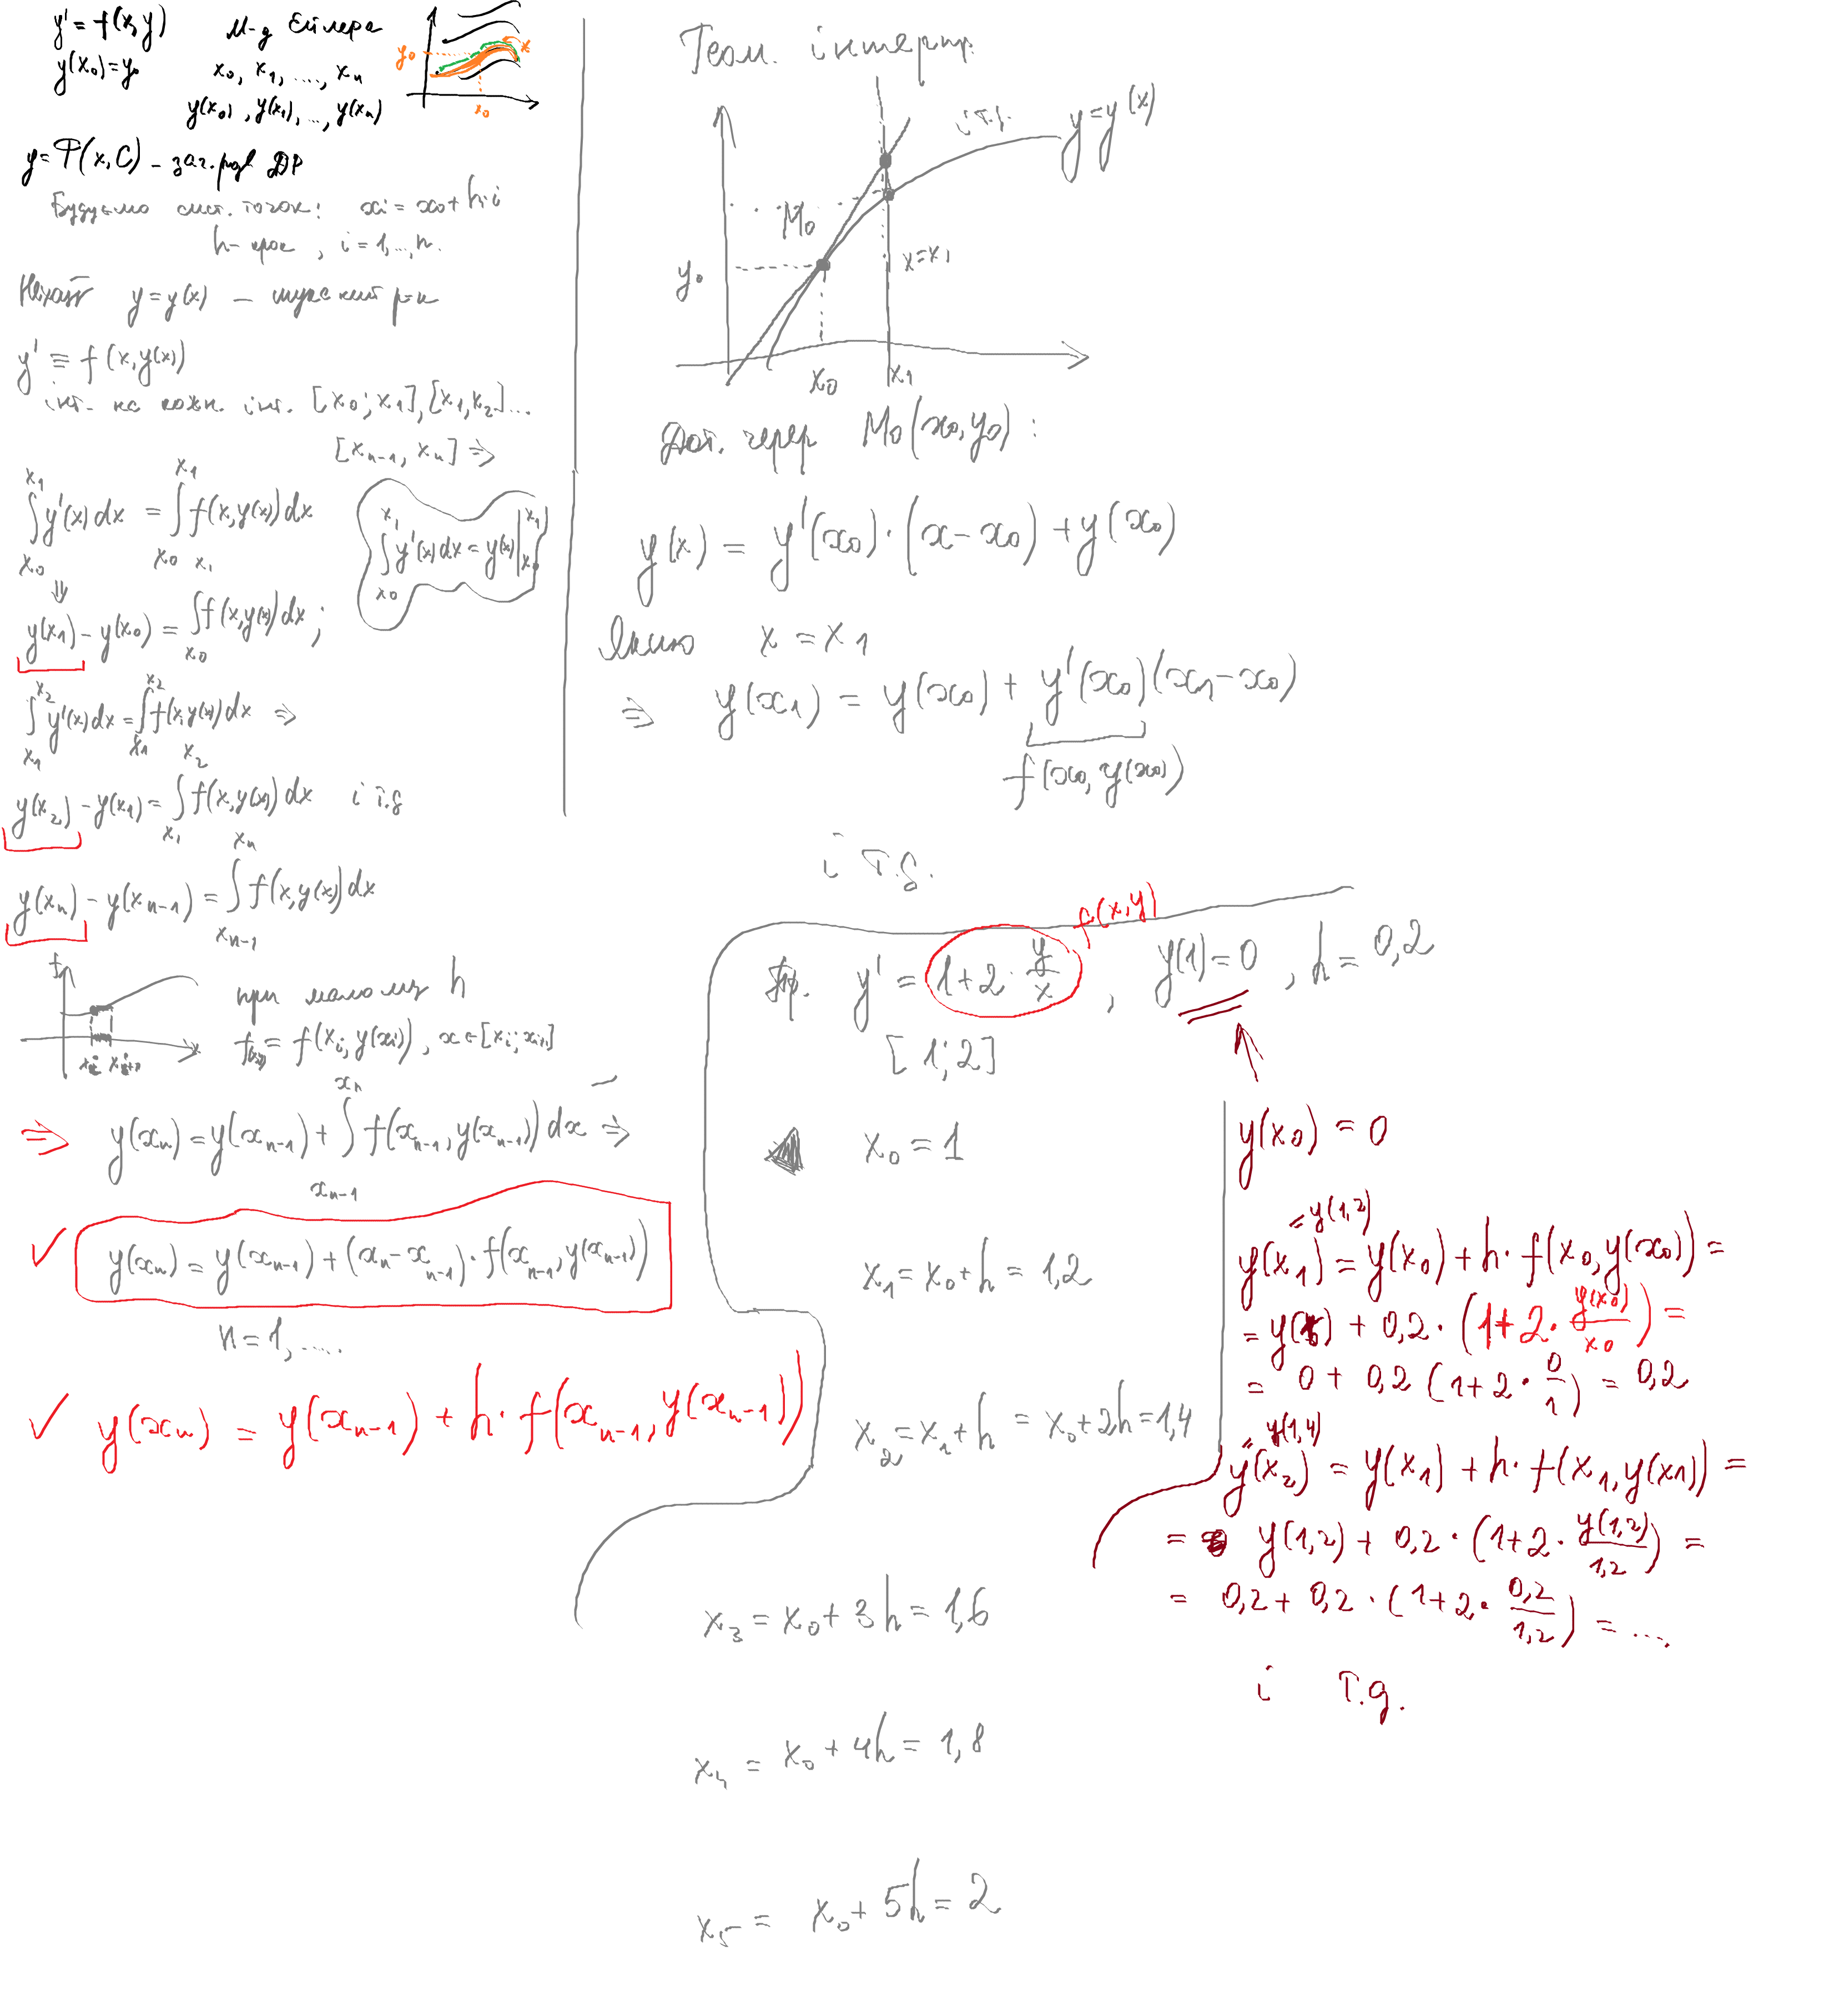 y' = f(x,y)
y(x₀)=y₀
М-д Ейлера
x₀, x₁, ..., xₙ
y(x₀), y(x₁), ..., y(xₙ)
y₀
x₀
y = Φ(x,C) - заг. розв ДР
Будуємо сист. точок: xᵢ = x₀ + h·i
h - крок, i = 1,...,n.
Нехай y = y(x) - шуканий р-к
y' ≡ f(x,y(x))
інт. на кожн. інт. [x₀; x₁], [x₁, x₂]...
[xₙ₋₁, xₙ] ⇒
∫_{x₀}^{x₁} y'(x) dx = ∫_{x₀}^{x₁} f(x,y(x)) dx
∫_{x₀}^{x₁} y'(x) dx = y(x) |_{x₀}^{x₁}
⇓
y(x₁) - y(x₀) = ∫_{x₀}^{x₁} f(x,y(x)) dx;
∫_{x₁}^{x₂} y'(x) dx = ∫_{x₁}^{x₂} f(x,y(x)) dx ⇒
y(x₂) - y(x₁) = ∫_{x₁}^{x₂} f(x,y(x)) dx і т.д
y(xₙ) - y(xₙ₋₁) = ∫_{xₙ₋₁}^{xₙ} f(x,y(x)) dx
f
x
xᵢ xᵢ₊₁
при малому h
f(x,y) = f(xᵢ, y(xᵢ)), x ∈ [xᵢ; xᵢ₊₁]
⇒ y(xₙ) = y(xₙ₋₁) + ∫_{xₙ₋₁}^{xₙ} f(xₙ₋₁, y(xₙ₋₁)) dx ⇒
✓ y(xₙ) = y(xₙ₋₁) + (xₙ - xₙ₋₁)·f(xₙ₋₁, y(xₙ₋₁))
n = 1, ....
✓ y(xₙ) = y(xₙ₋₁) + h·f(xₙ₋₁, y(xₙ₋₁))
Геом. інтерпр.
і т.д.
y = y(x)
M₀
y₀
x = x₁
x₀
x₁
Дот. через M₀(x₀,y₀):
y(x) = y'(x₀)·(x - x₀) + y(x₀)
Якщо x = x₁
⇒ y(x₁) = y(x₀) + y'(x₀)(x₁ - x₀)
f(x₀, y(x₀))
і т.д.
f(x,y)
Пр. y' = 1+2·y/x, y(1)=0, h = 0,2
[1; 2]
x₀ = 1
x₁ = x₀ + h = 1,2
x₂ = x₁ + h = x₀ + 2h = 1,4
x₃ = x₀ + 3h = 1,6
x₄ = x₀ + 4h = 1,8
x₅ = x₀ + 5h = 2
y(x₀) = 0
= y(1,2)
y(x₁) = y(x₀) + h·f(x₀, y(x₀)) =
= y(x₀) + 0,2·(1+2·y(x₀)/x₀) =
= 0 + 0,2 (1+2·0/1) = 0,2
= y(1,4)
y(x₂) = y(x₁) + h·f(x₁, y(x₁)) =
= y(1,2) + 0,2·(1+2·y(1,2)/1,2) =
= 0,2 + 0,2·(1+2·0,2/1,2) = ....
і т.д.